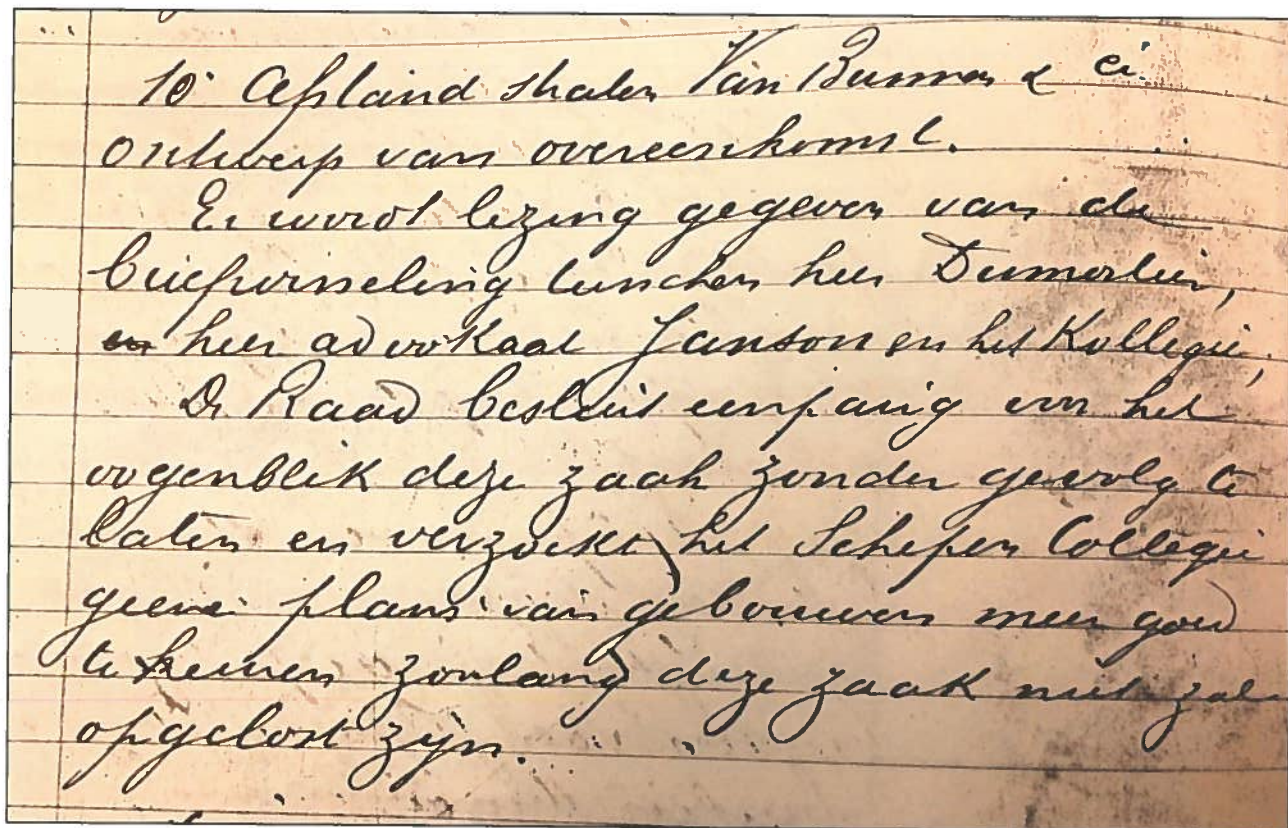 10° Afstand straten Van Bunnen & Cie.
Ontwerp van overeenkomst.
Er wordt lezing gegeven van de
briefwisseling tusschen heer Dumortier,
en heer advokaat Janson en het Kollegie,
De Raad besluit eenparig voor het
oogenblik deze zaak zonder gevolg te
laten en verzoekt het Schepen Collegie
geene plans van gebouwen meer goed
te keuren zoolang deze zaak niet zal
opgelost zijn.